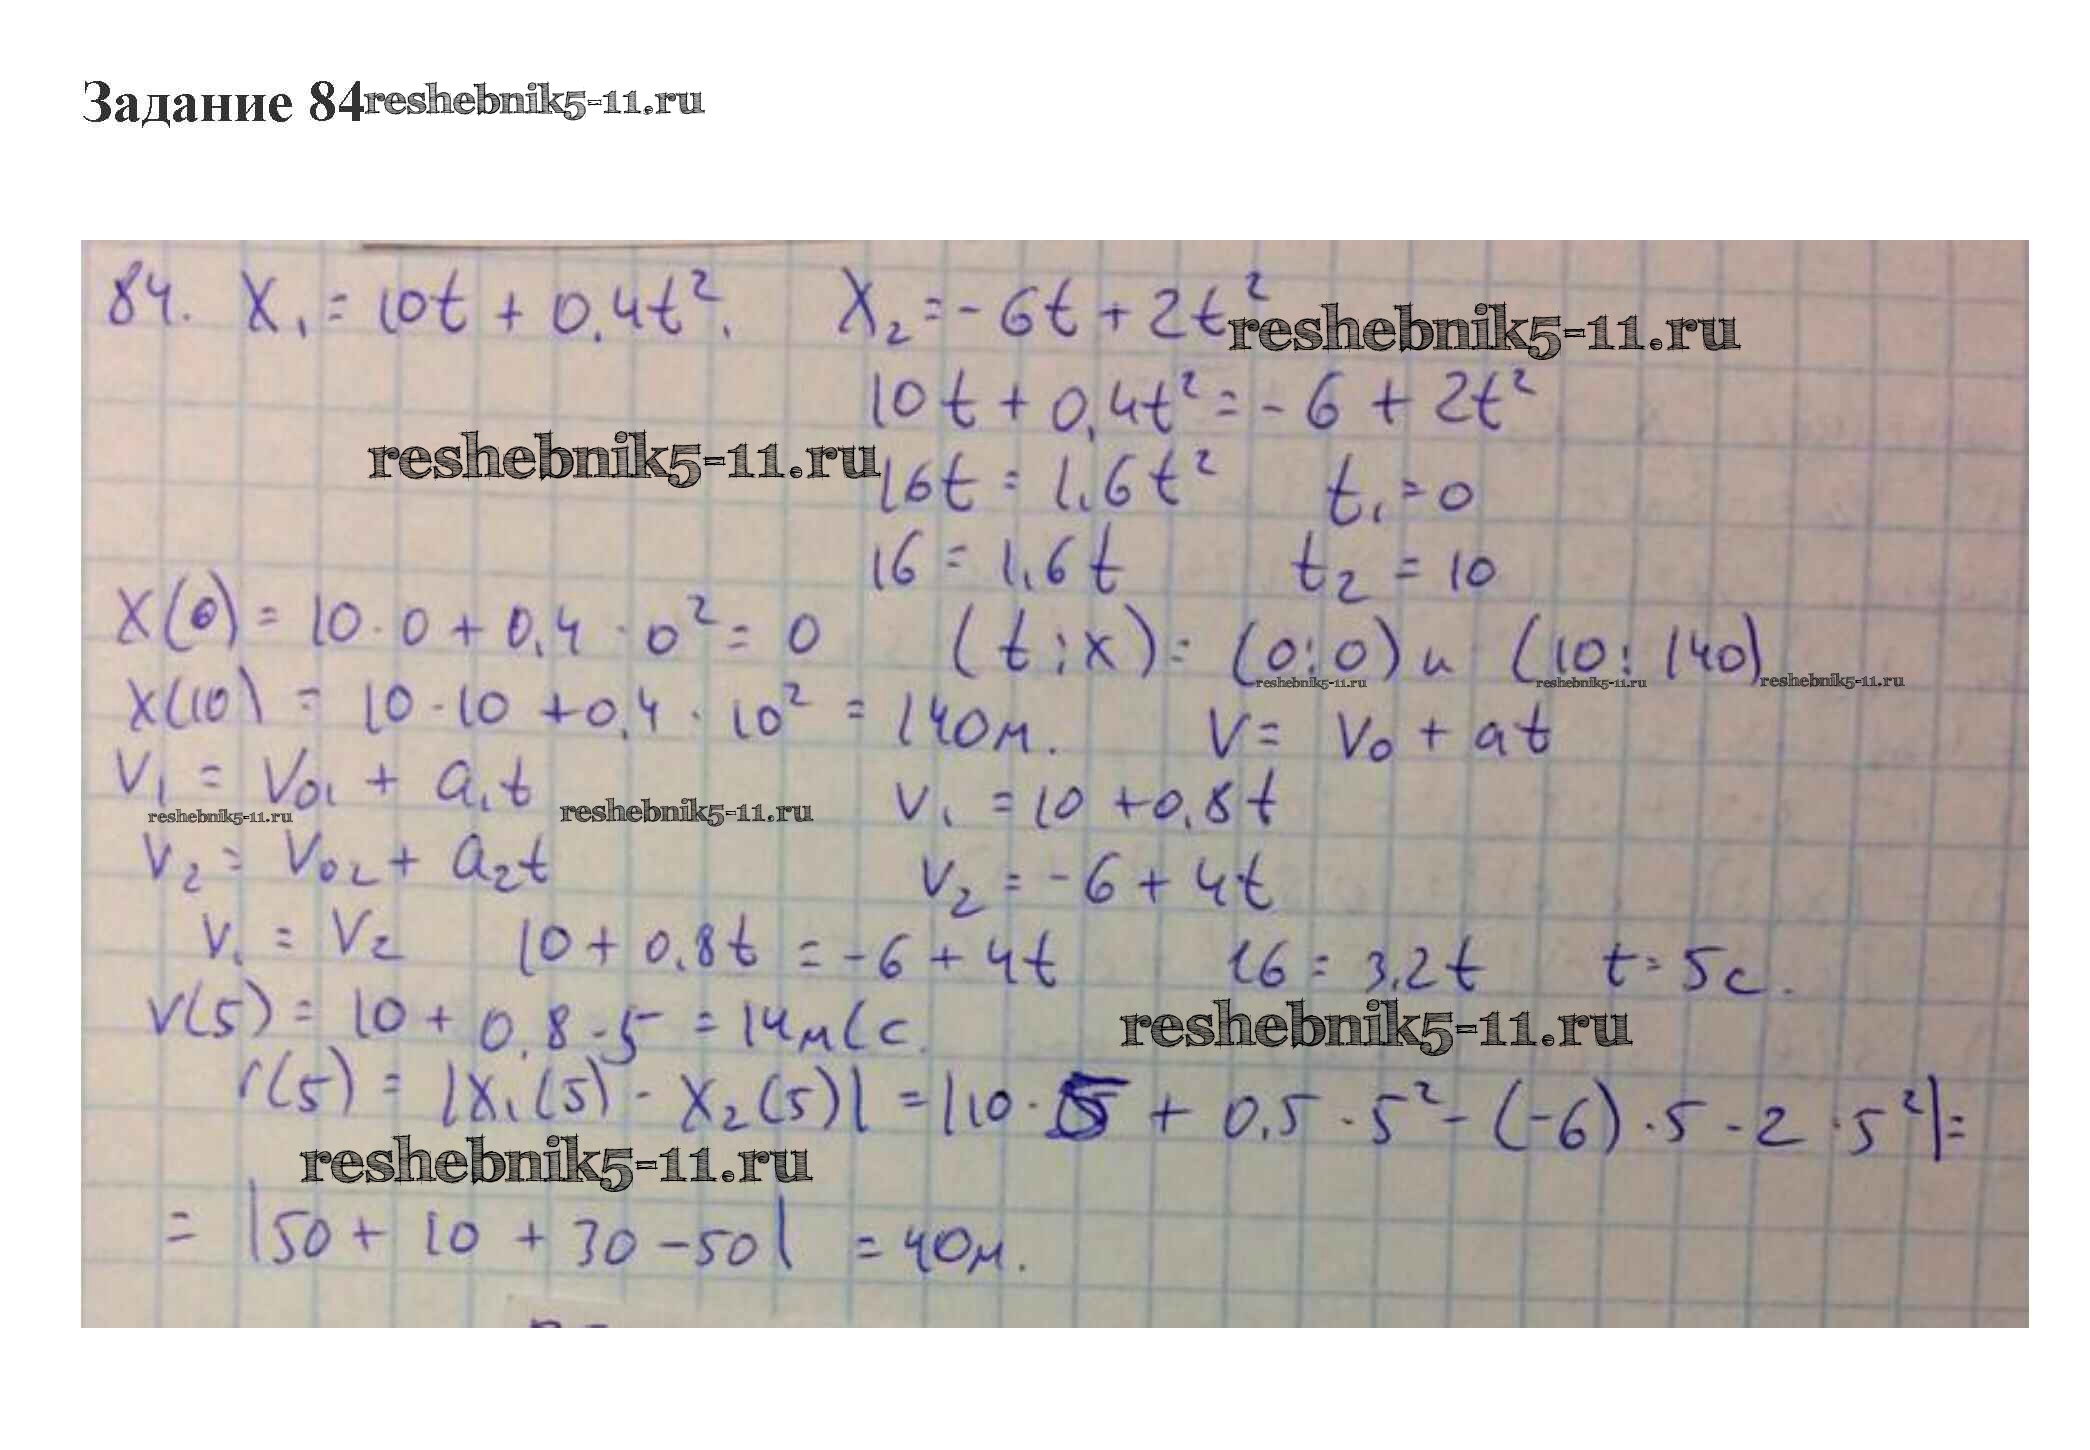 Задание 84reshebnik5-11.ru
84. X₁ = 10t + 0,4t². X₂ = - 6t + 2t²
reshebnik5-11.ru
10t + 0,4t² = - 6 + 2t²
reshebnik5-11.ru
16t = 1,6t² t₁ = 0
16 = 1,6t t₂ = 10
X(0) = 10·0 + 0,4·0² = 0 (t;x) = (0;0) и (10; 140)
reshebnik5-11.ru reshebnik5-11.ru reshebnik5-11.ru
X(10) = 10·10 + 0,4·10² = 140м. V = V₀ + at
V₁ = V₀₁ + a₁t V₁ = 10 + 0,8t
reshebnik5-11.ru reshebnik5-11.ru
V₂ = V₀₂ + a₂t V₂ = - 6 + 4t
V₁ = V₂ 10 + 0,8t = - 6 + 4t 16 = 3,2t t = 5с.
V(5) = 10 + 0,8·5 = 14м/с.
reshebnik5-11.ru
r(5) = |X₁(5) - X₂(5)| = |10·5 + 0,5·5² - (-6)·5 - 2·5²| =
reshebnik5-11.ru
= |50 + 10 + 30 - 50| = 40м.